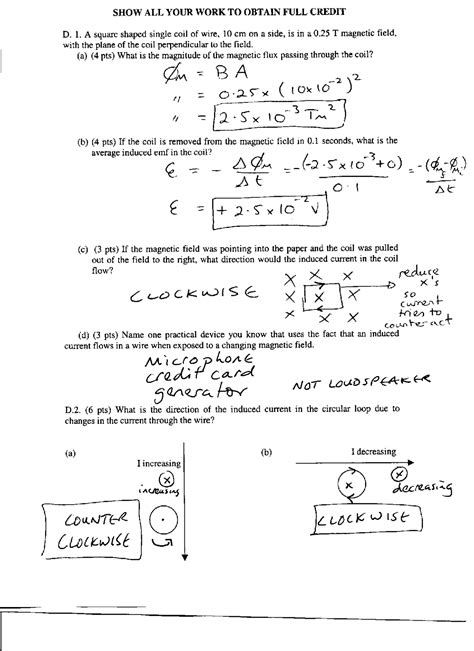 SHOW ALL YOUR WORK TO OBTAIN FULL CREDIT
D. 1. A square shaped single coil of wire, 10 cm on a side, is in a 0.25 T magnetic field,
with the plane of the coil perpendicular to the field.
(a) (4 pts) What is the magnitude of the magnetic flux passing through the coil?
Φm = B A
" = 0.25 x (10x10⁻²)²
" = 2.5 x 10⁻³ Tm²
(b) (4 pts) If the coil is removed from the magnetic field in 0.1 seconds, what is the
average induced emf in the coil?
ε = - ΔΦm / Δt = -(-2.5x10⁻³+0) / 0.1 = -(Φmf-Φmi) / Δt
ε = + 2.5 x 10⁻² V
(c) (3 pts) If the magnetic field was pointing into the paper and the coil was pulled
out of the field to the right, what direction would the induced current in the coil
flow?
CLOCKWISE
x x x
x x x
x x x
reduce
x's
so
current
tries to
counteract
(d) (3 pts) Name one practical device you know that uses the fact that an induced
current flows in a wire when exposed to a changing magnetic field.
Microphone
credit card
generator
NOT LOUDSPEAKER
D.2. (6 pts) What is the direction of the induced current in the circular loop due to
changes in the current through the wire?
(a)
I increasing
x
increasing
COUNTER
CLOCKWISE
(b)
I decreasing
x
x
decreasing
CLOCKWISE